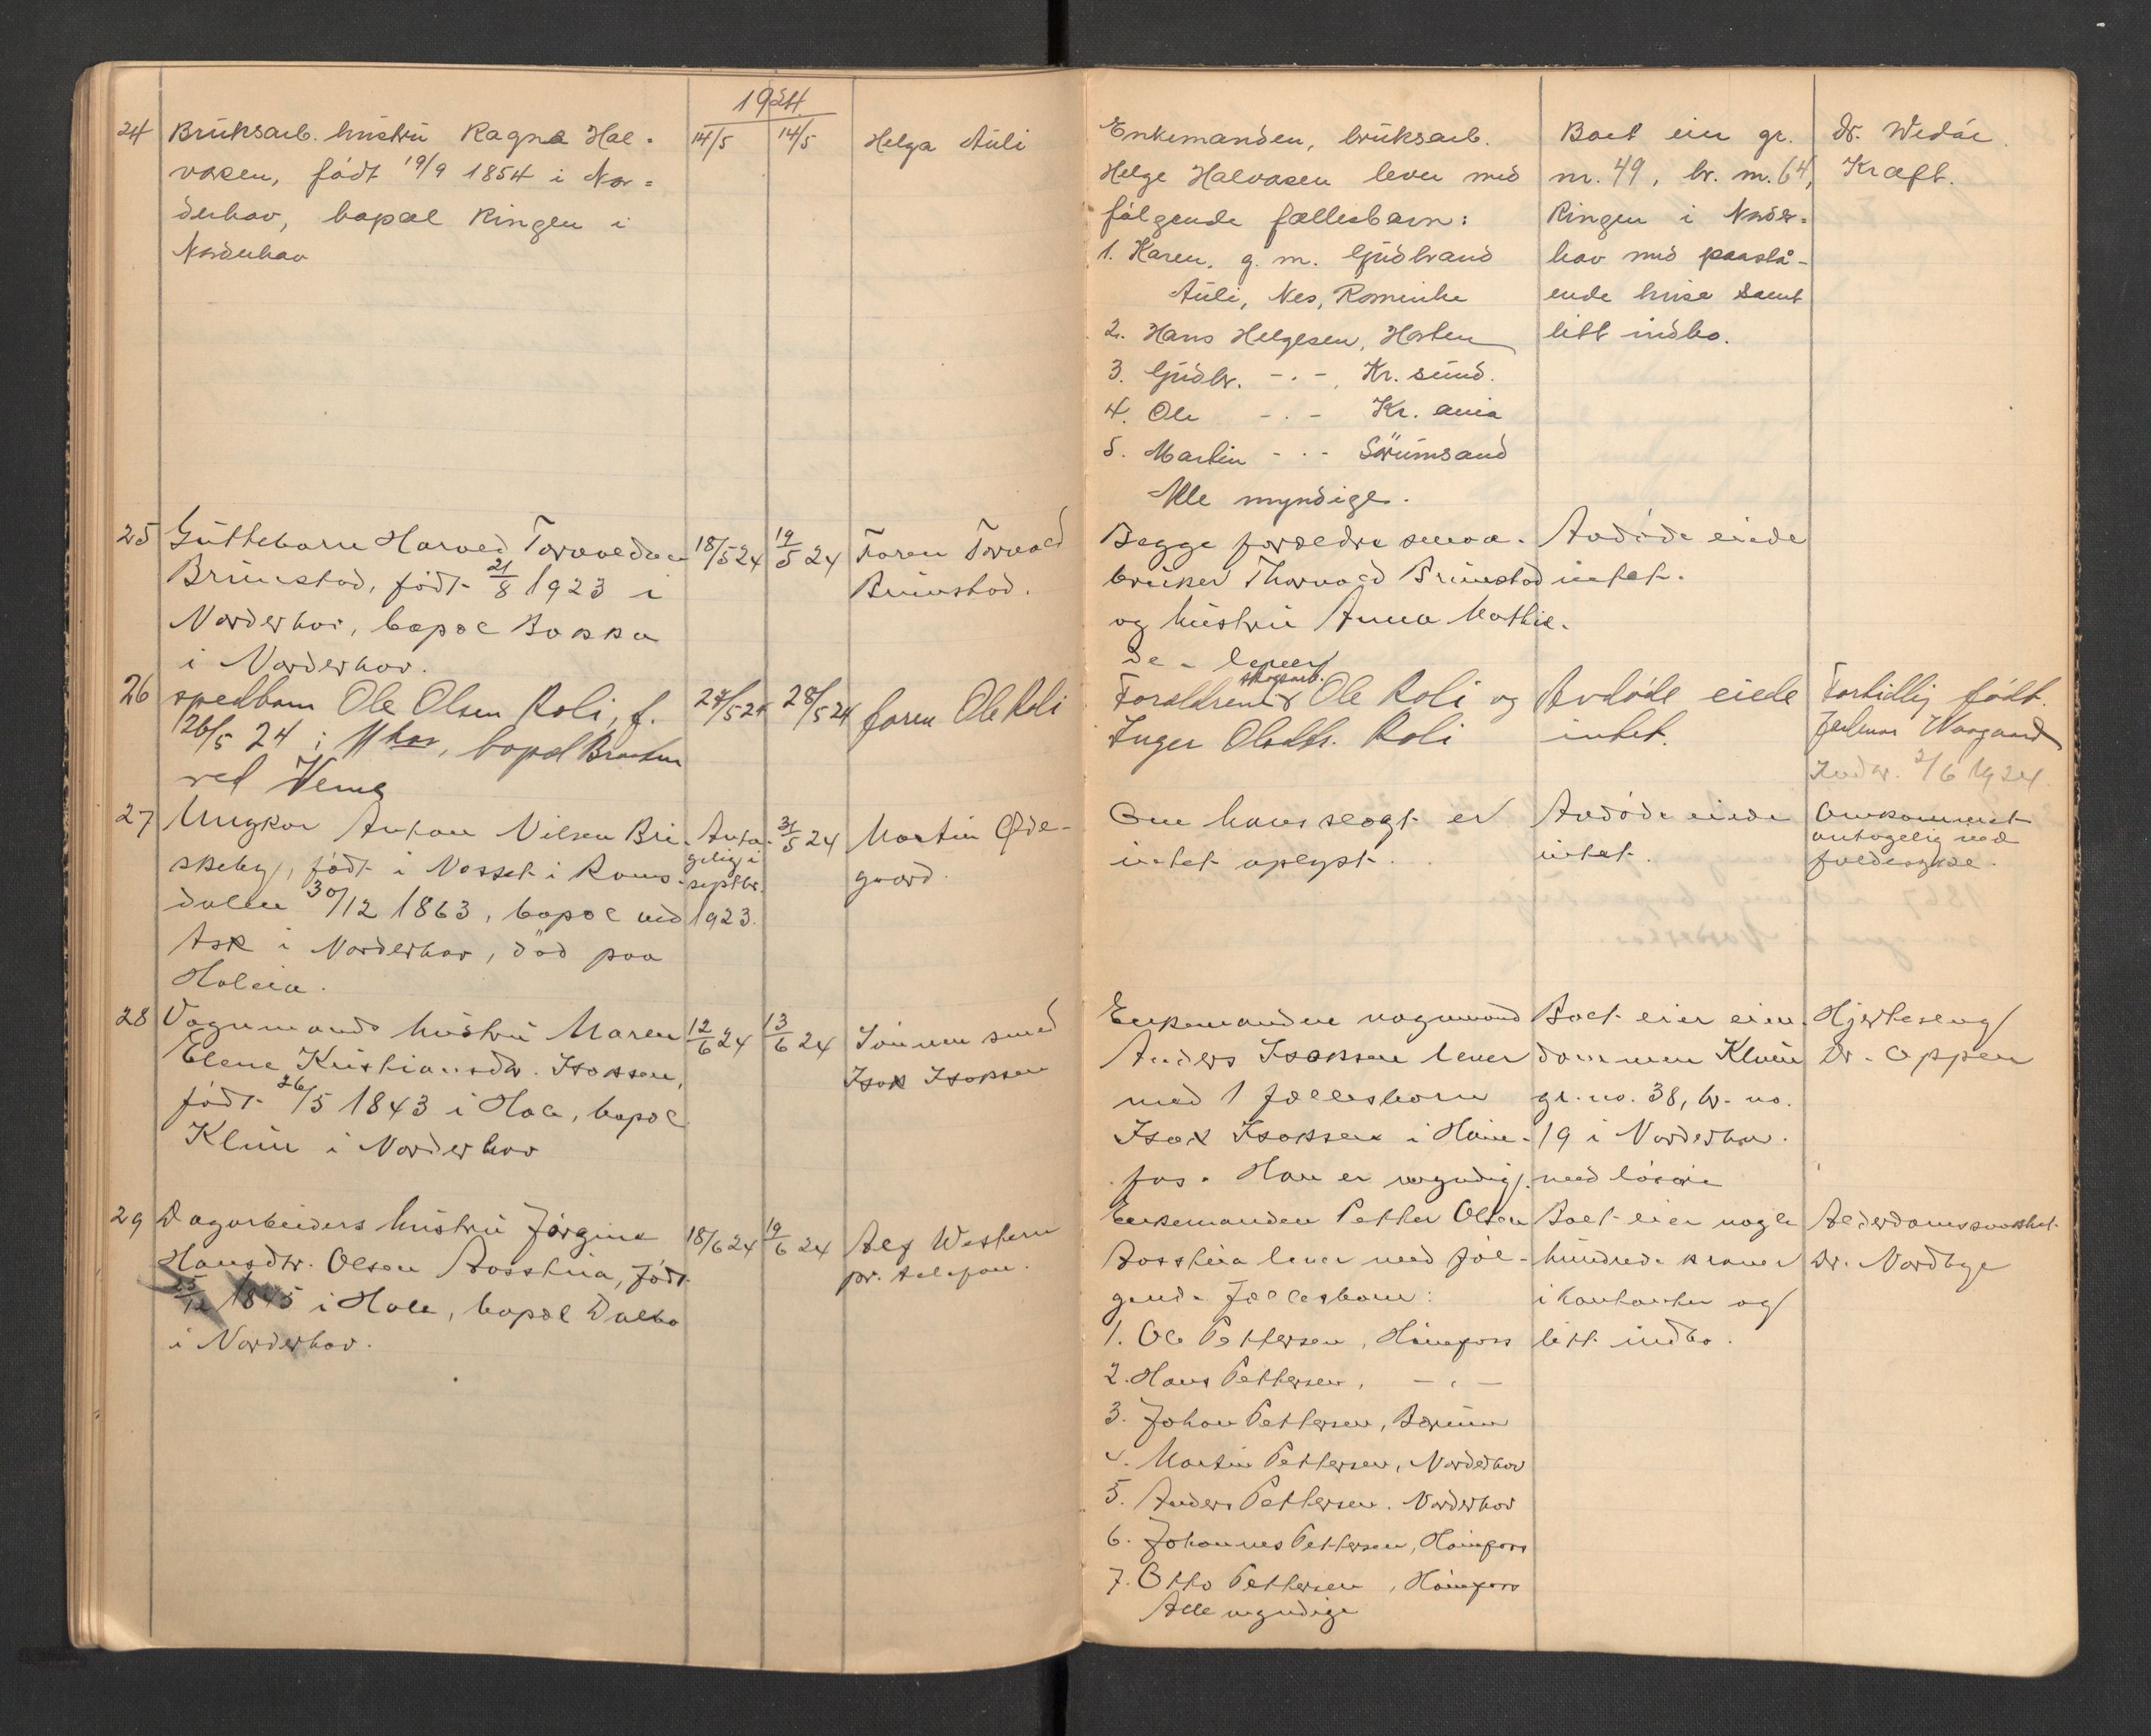 1924
24 Bruksarb. hustru Ragna Hal-
vorsen, född 19/9 1854 i Nor=
derhov, bopæl Ringen i
Norderhov
14/5 14/5 Helga Auli
Enkemanden, bruksarb.
Helge Halvorsen lever med
følgende fællesbarn:
1. Karen, g. m. Gudbrand
Auli, Nes, Romerike
2. Hans Helgesen, Horten
3. Gudbr. - . - , Kr. sund.
4. Ole - . - Kr. ania
5. Martin - . - Sörumsand
Alle myndige.
Boet eier gr.
nr. 49, br. nr. 64,
Ringen i Norder-
hov med paastå-
ende huse samt
litt indbo.
Dr. Wedár
Kraft.
25 Guttebarn Harald Torvaldsen
Brunstad, födt 21/8 1923 i
Norderhov, bopæl
i Norderhov.
18/5 24 19/5 24 Faren Torvald
Brunstad.
Begge foreldre smaa-
bruker Thorvald Brunstad
og hustru Anna Mathil-
de - lever
Avdöde eiede
intet.
26 spedbarn Ole Olsen Roli, f.
26/5 24 i Nhov, bopæl
ved Veme
27/5 24 28/5 24 faren Ole Roli
skogsarb.
Foreldrene Ole Roli og
Inger Olsdtr. Roli
Avdöde eiede
intet.
Fortidlig födt.
Waagaard
Indb. 2/6 1924
27 Ungkar Anton Nilsen Bri-
skeby, födt i Nesset i Roms-
dalen 30/12 1863, bopæl ved
Ask i Norderhov, död paa
Holeia.
Anta-
gelig i
septbr.
1923.
31/5 24 Martin Øde-
gaard.
Om hans slegt er
intet oplyst.
Avdöde eiede
intet.
Omkommet
antagelig ved
faldesyke.
28 Vognmands hustru Maren
Elene Kristiansdtr. Isaksen,
födt 26/5 1843 i Hole, bopæl
Klein i Norderhov
12/6 24 13/6 24 Sönnen smed
Isak Isaksen
Enkemanden vognmand
Anders Isaksen lever
med 1 fællesbarn
Isak Isaksen i Höne-
fos. Han er myndig.
Boet eier eien-
dommen Klein
gr. no. 38, br. no.
19 i Norderhov.
med lösöre
Hjerteslag
Dr. Oppen
29 Dagarbeiders hustru Jörgine
Hansdtr. Olsen Aasslien, födt
25/12 1845 i Hole, bopæl Dalbo
i Norderhov.
18/6 24 19/6 24 Alf Western
pr. telefon.
Enkemanden Petter Olsen
Aasslien lever med föl-
gende fællesbarn:
1. Ole Pettersen, Hönefoss
2. Hans Pettersen, - . -
3. Johan Pettersen, Bærum
4. Martin Pettersen, Norderhov
5. Anders Pettersen. Norderhov
6. Johannes Pettersen, Hönefoss
7. Otto Pettersen, Hönefoss
Alle myndige
Boet eier nogle
hundrede kroner
i kontanter og
litt indbo.
Alderdomssvakhet
Dr. Nordbye